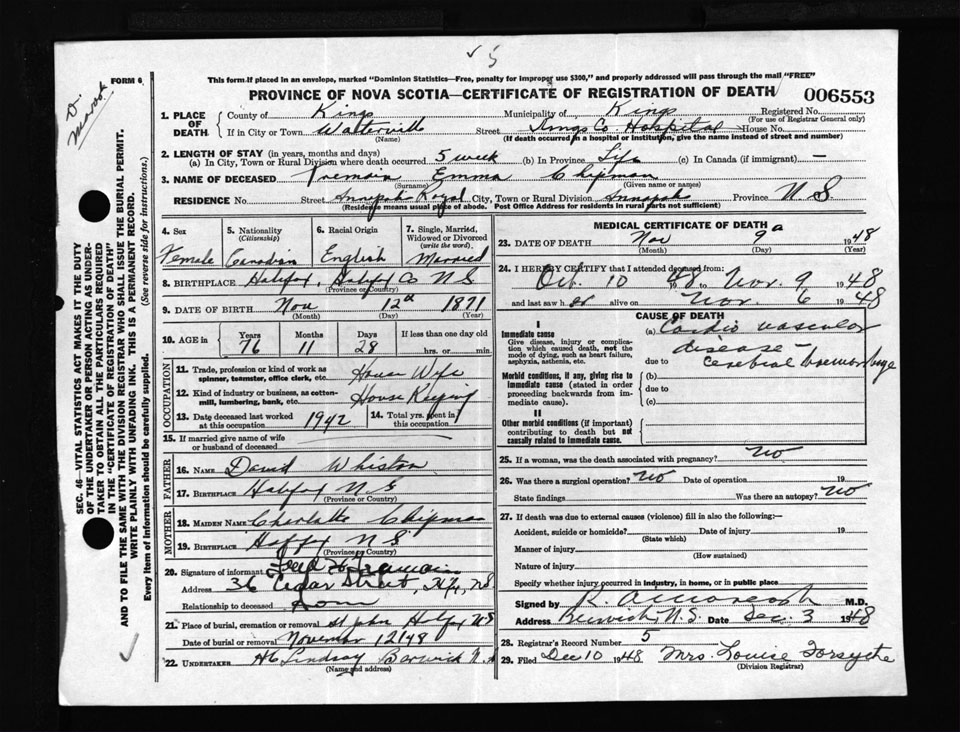 ✓ 5
FORM 6
This form if placed in an envelope, marked "Dominion Statistics—Free, penalty for improper use $300," and properly addressed will pass through the mail "FREE"
PROVINCE OF NOVA SCOTIA—CERTIFICATE OF REGISTRATION OF DEATH
006553
1. PLACE OF DEATH
County of Kings Municipality of Kings Registered No.
(For use of Registrar General only)
If in City or Town Waterville Street Kings Co Hospital House No.
(Name) (If death occurred in a hospital or institution, give the name instead of street and number)
2. LENGTH OF STAY (in years, months and days)
(a) In City, Town or Rural Division where death occurred 5 week (b) In Province Life (c) In Canada (if immigrant) —
3. NAME OF DECEASED Tremain Emma Chipman
(Surname) (Given name or names)
RESIDENCE No. Street Annapolis Royal City, Town or Rural Division Province N S
(Residence means usual place of abode. Post Office Address for residents in rural parts not sufficient)
4. Sex Female
5. Nationality (Citizenship) Canadian
6. Racial Origin English
7. Single, Married, Widowed or Divorced (write the word) Married
8. BIRTHPLACE Halifax, Halifax Co N S
(Province or Country)
9. DATE OF BIRTH Nov 12th 1871
(Month) (Day) (Year)
10. AGE in Years 76 Months 11 Days 28 If less than one day old
hrs. or min.
OCCUPATION
11. Trade, profession or kind of work as spinner, teamster, office clerk, etc. House Wife
12. Kind of industry or business, as cotton-mill, lumbering, bank, etc. House Keeping
13. Date deceased last worked at this occupation 1942
14. Total yrs. spent in this occupation
15. If married give name of wife or husband of deceased
FATHER
16. NAME David Whiston
17. BIRTHPLACE Halifax N S
(Province or Country)
MOTHER
18. MAIDEN NAME Charlotte Chipman
19. BIRTHPLACE Halifax N S.
(Province or Country)
20. Signature of informant
Address 36 Cedar Street, Hfx, NS
Relationship to deceased
21. Place of burial, cremation or removal St John Halifax N S
Date of burial or removal November 12/48
22. UNDERTAKER Lindsay Berwick N.S
(Name and address)
MEDICAL CERTIFICATE OF DEATH
23. DATE OF DEATH Nov 9 1948
(Month) (Day) (Year)
24. I HEREBY CERTIFY that I attended deceased from:
Oct. 10 1948 to Nov. 9 1948
and last saw h er alive on Nov. 6 1948
CAUSE OF DEATH
I
Immediate cause
Give disease, injury or complication which caused death, not the mode of dying, such as heart failure, asphyxia, asthenia, etc.
(a) Cardio vascular
disease —
due to cerebral haemorrhage
Morbid conditions, if any, giving rise to immediate cause (stated in order proceeding backwards from immediate cause).
(b)
due to
(c)
II
Other morbid conditions (if important) contributing to death but not causally related to immediate cause.
25. If a woman, was the death associated with pregnancy? No
26. Was there a surgical operation? No Date of operation 19
State findings Was there an autopsy? No
27. If death was due to external causes (violence) fill in also the following:—
Accident, suicide or homicide? Date of injury 19
(State which)
Manner of injury
(How sustained)
Nature of injury
Specify whether injury occurred in industry, in home, or in public place
Signed by M.D.
Address Berwick, N.S. Date Dec. 3 1948
28. Registrar's Record Number 5
29. Filed Dec 10 1948 Mrs. Louise Forsythe
(Division Registrar)
SEC. 46—VITAL STATISTICS ACT MAKES IT THE DUTY
OF THE UNDERTAKER OR PERSON ACTING AS UNDER-
TAKER TO OBTAIN ALL THE PARTICULARS REQUIRED
IN THE "CERTIFICATE OF REGISTRATION OF DEATH"
AND TO FILE THE SAME WITH THE DIVISION REGISTRAR WHO SHALL ISSUE THE BURIAL PERMIT.
WRITE PLAINLY WITH UNFADING INK. THIS IS A PERMANENT RECORD.
Every item of information should be carefully supplied. (See reverse side for instructions.)